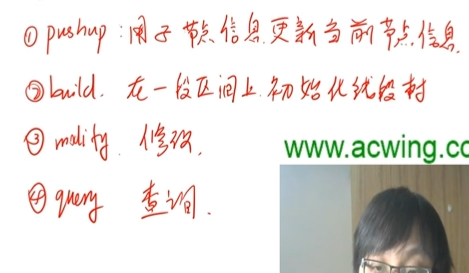 ① pushup: 用子节点信息更新当前节点信息.
② build. 在一段区间上初始化线段树
③ modify 修改.
④ query 查询.
www.acwing.co